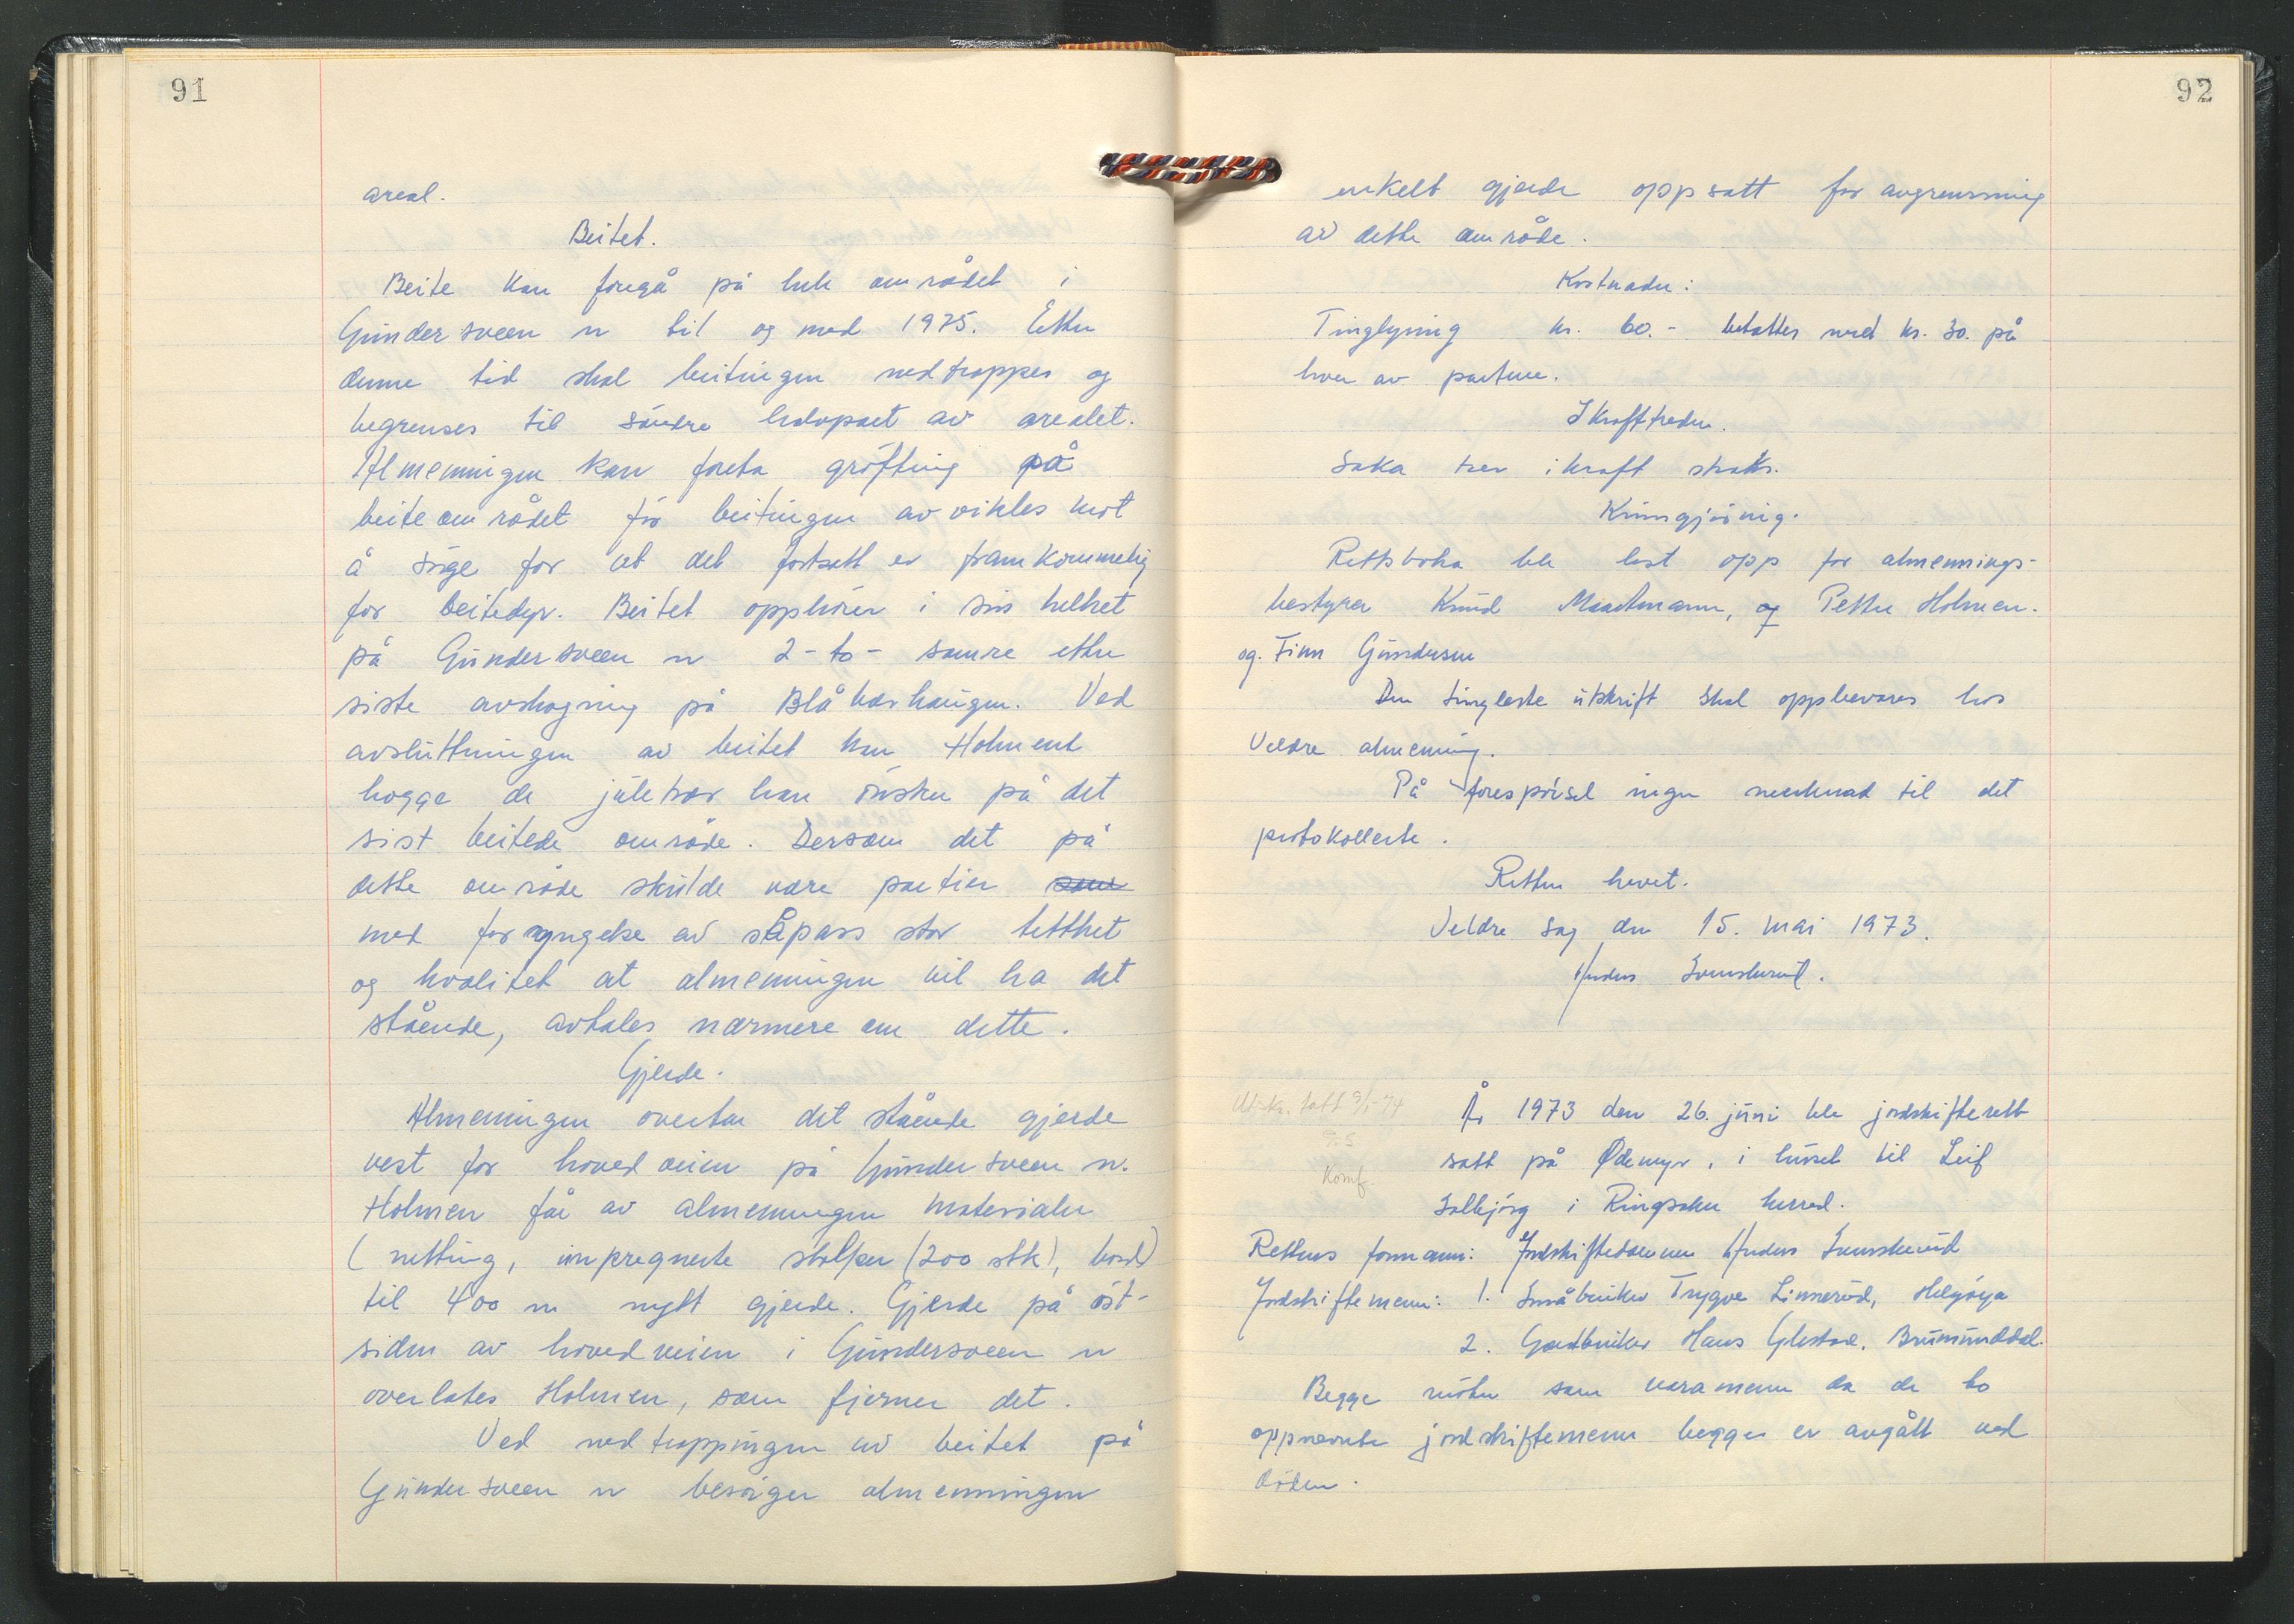 91
areal.
Beitet.
Beite kan foregå på hele området i
Gundersveen n til og med 1975. Etter
denne tid skal beitingen nedtrappes og
begrenses til söndre halvpart av arealet.
Almenningen kan foreta gröfting på
beiteområdet för beitingen avvikles mot
å sörge for at det fortsatt er framkommelig
for beitedyr. Beitet opphörer i sin helhet
på Gundersveen n 2-to- somre etter
siste avhogning på Blåbærhaugen. Ved
avslutningen av beitet kan Holment
hogge de juletrær han önsker på det
sist beitede område. Dersom det på
dette område skulde være partier som
med foryngelse av såpass stor tetthet
og kvalitet at almenningen vil ha det
stående, avtales nærmere om dette.
Gjerde.
Almenningen overtar det stående gjerde
vest for hovedveien på Gundersveen n.
Holmen får av almenningen materialer
(netting, impregnerte stolper (200 stk), bord)
til 400 m nytt gjerde. Gjerde på öst-
siden av hovedveien i Gundersveen n
overlates Holmen, som fjerner det.
Ved nedtrappingen av beitet på
Gundersveen n besörger almenningen
92
enkelt gjerde oppsatt for avgrensning
av dette område.
Kostnader:
Tinglysing kr. 60.- betales med kr. 30. på
hver av partene.
Ikrafttreden.
Saka trer i kraft straks.
Kunngjöring.
Rettsboka ble lest opp for almennings-
bestyrer Knud Maartmann, og Petter Holmen.
og. Finn Gundersen
Den tingleste utskrift skal oppbevares hos
Veldre almenning.
På forespörsel ingen merknad til det
protokollerte.
Retten hevet.
Veldre sag den 15. mai 1973.
Anders
Utskr. tatt 9/1-74
T.S
Komf.
År 1973 den 26. juni ble jordskifterett
satt på Ödemyr, i huset til Leif
Solbjörg i Ringsaker herred.
Rettens formann: Jordskiftedommer Anders
Jordskiftemenn: 1. Småbruker Trygve Linneröd, Helgöya
2. Gardbruker Hans Glestad. Brumunddal.
Begge möter som varamenn da de to
oppnevnte jordskiftemenn begge er avgått ved
döden.